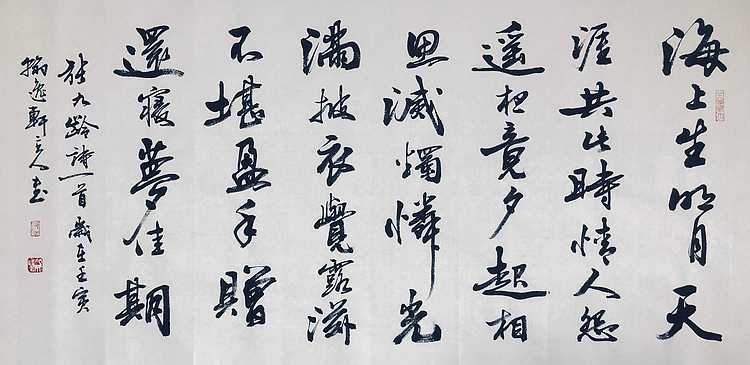 海上生明月天
涯共此時情人怨
遥夜竟夕起相
思滅燭憐光
滿披衣覺露滋
不堪盈手贈
還寢夢佳期
張九齡詩一首歲在壬寅
逸軒主人書